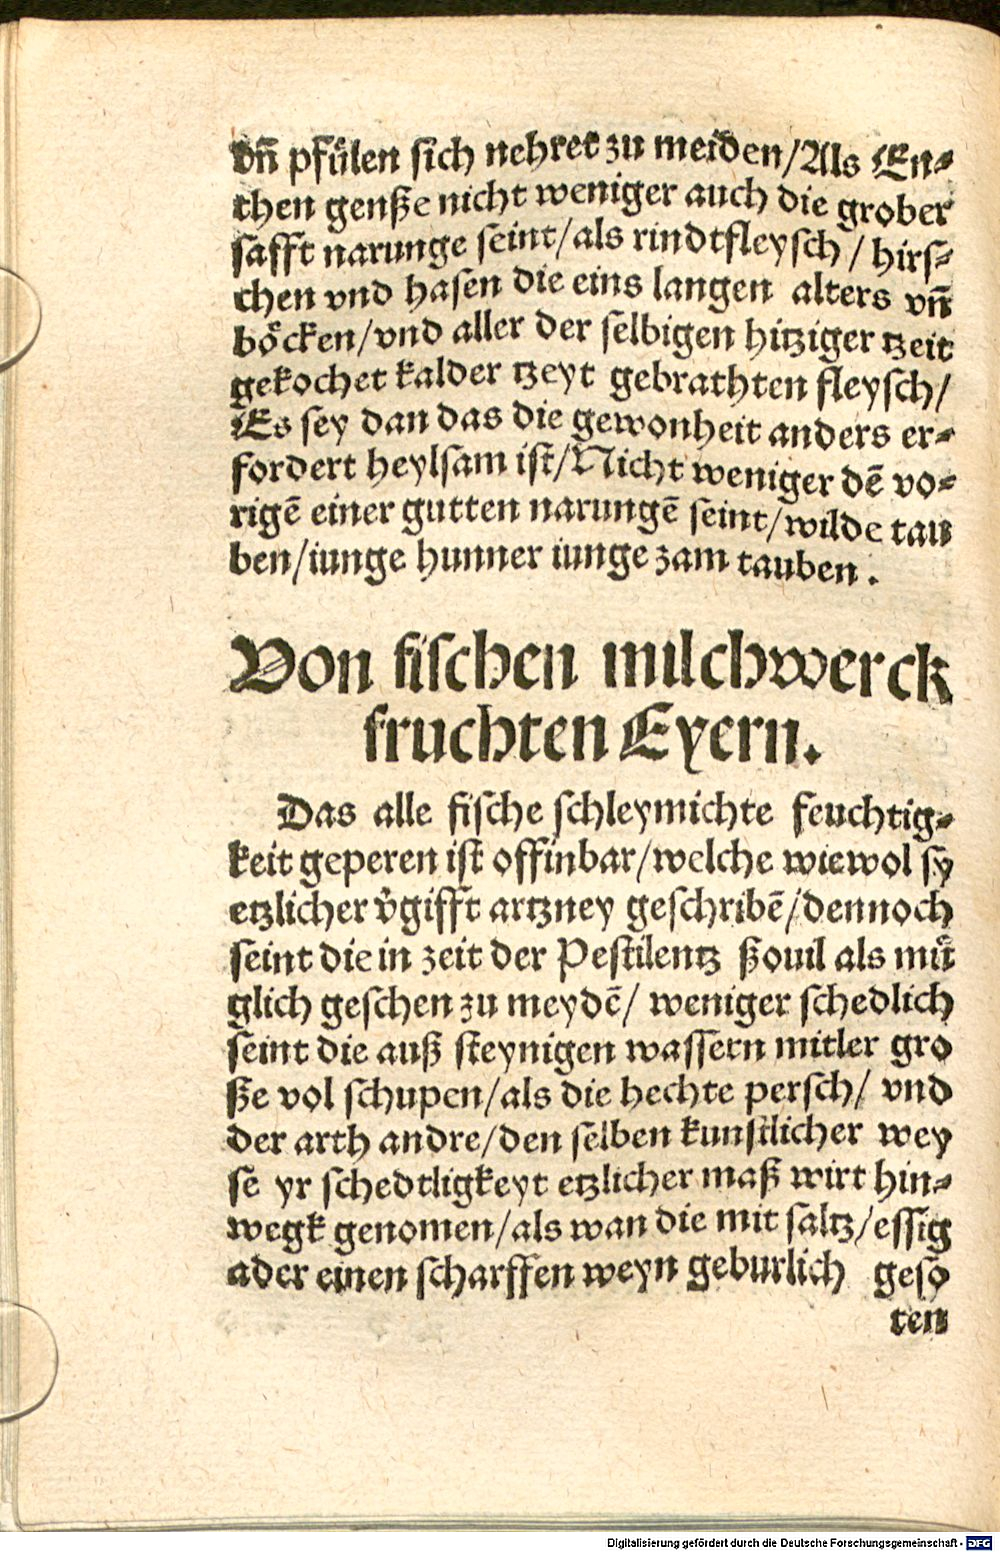 vñ pfůlen sich nehret zu meiden/Als En⸗
then genße nicht weniger auch die grober
safft narunge seint/als rindtfleysch / hirs⸗
chen vnd hasen die eins langen alters vñ
böcken/vnd aller der selbigen hitziger tzeit
gekochet kalder tzeyt gebrathten fleysch/
Es sey dan das die gewonheit anders er⸗
fordert heylsam ist/Nicht weniger dē vo⸗
rigē einer gutten narungē seint/wilde tau
ben/iunge hunner iunge zam tauben .
Von fischen milchwerck
fruchten Eyern.
Das alle fische schleymichte feuchtig⸗
keit geperen ist offinbar/welche wiewol sy
etzlicher v̊gifft artzney geschribē/dennoch
seint die in zeit der Pestilentz ßouil als mů
glich geschen zu meydē/ weniger schedlich
seint die auß steynigen wassern mitler gro
ße vol schupen/als die hechte persch/ vnd
der arth andre/den selben kunstlicher wey
se yr schedtligkeyt etzlicher maß wirt hin⸗
wegk genomen/als wan die mit saltz/essig
ader einen scharffen weyn geburlich geso
ten
Digitalisierung gefördert durch die Deutsche Forschungsgemeinschaft - DFG